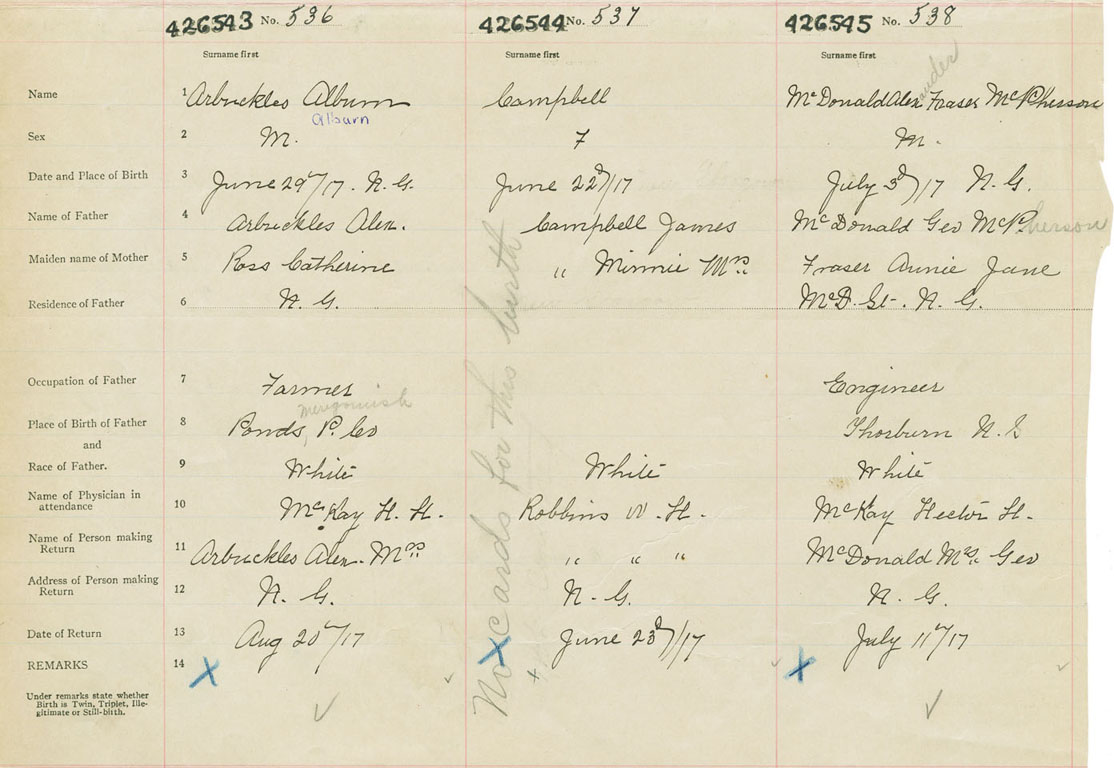 426543 No. 536 426544 No. 537 426545 No. 538
Surname first Surname first Surname first
Name 1 Arbuckles Album Campbell McDonald Alexander Fraser McPherson
Alburn
Sex 2 M. F M.
Date and Place of Birth 3 June 29th/17. N.G. June 22d/17 July 3d/17 N.G.
Name of Father 4 Arbuckles Alex. Campbell James McDonald Geo McPherson
Maiden name of Mother 5 Ross Catherine " Minnie Mrs. Fraser Annie Jane
Residence of Father 6 N.G. McD. St. N.G.
Occupation of Father 7 Farmer Engineer
Merigomish
Place of Birth of Father 8 Ponds, P. Co Thorburn N.S
and
Race of Father. 9 White White White
Name of Physician in attendance 10 McKay H. H. Robbins W. H. McKay Hector H.
Name of Person making Return 11 Arbuckles Alex. Mrs. " " " McDonald Mrs. Geo
Address of Person making Return 12 N. G. N. G. N. G.
Date of Return 13 Aug 20th/17 June 23d/17 July 11th/17
REMARKS 14 X X X
Under remarks state whether
Birth is Twin, Triplet, Ille-
gitimate or Still-birth.
No cards for this birth